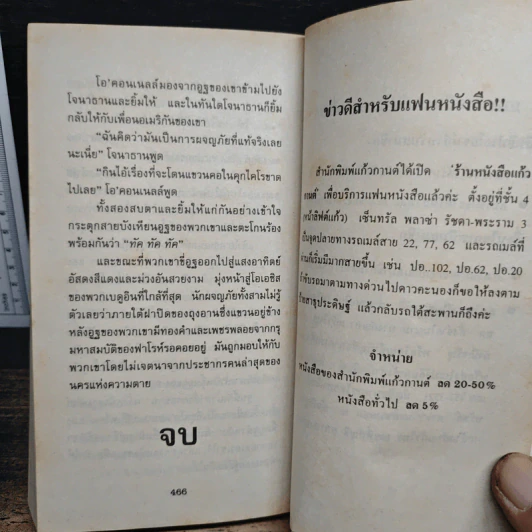 โอ'คอนเนลล์มองจากอูฐของเขาข้ามไปยัง
โจนาธานและยิ้มให้ และในทันใดโจนาธานก็ยิ้ม
กลับให้กับเพื่อนอเมริกันของเขา
"ฉันคิดว่ามันเป็นการผจญภัยที่แท้จริงเลย
นะเนี่ย" โจนาธานพูด
"กินไอ้เรื่องที่จะโดนแขวนคอในคุกไคโรขาด
ไปเลย" โอ'คอนเนลล์พูด
ทั้งสองสบตาและยิ้มให้แก่กันอย่างเข้าใจ
กระตุกสายบังเหียนอูฐของพวกเขาและตะโกนร้อง
พร้อมกันว่า "ทัค ทัค ทัค"
และขณะที่พวกเขาขี่อูฐออกไปสู่แสงอาทิตย์
อัสดงสีแดงและม่วงอันสวยงาม มุ่งหน้าสู่โอเอซิส
ของพวกเบดูอินที่ใกล้ที่สุด นักผจญภัยทั้งสามไม่รู้
ตัวเลยว่าภายใต้ฝาปิดของถุงอานซึ่งแขวนอยู่ข้าง
หลังอูฐของพวกเขามีทองคำและเพชรพลอยจากกรุ
มหาสมบัติของฟาโรห์รอคอยอยู่ มันถูกมอบให้กับ
พวกเขาโดยไม่เจตนาจากประชากรคนล่าสุดของ
นครแห่งความตาย
จบ
466
ข่าวดีสำหรับแฟนหนังสือ!!
สำนักพิมพ์แก้วกานต์ได้เปิด "ร้านหนังสือแก้ว
กานต์" เพื่อบริการแฟนหนังสือแล้วค่ะ ตั้งอยู่ที่ชั้น 4
(หน้าลิฟต์แก้ว) เซ็นทรัล พลาซ่า รัชดา-พระราม 3
เป็นจุดปลายทางรถเมล์สาย 22, 77, 62 และรถเมล์ที่
ก็เริ่มมีมากสายขึ้น เช่น ปอ.102, ปอ.62, ปอ.20
รถมาตามทางด่วนไปดาวคะนองก็ขอให้ลงตาม
สาธุประดิษฐ์ แล้วกลับรถใต้สะพานก็ถึงค่ะ
จำหน่าย
หนังสือของสำนักพิมพ์แก้วกานต์ ลด 20-50%
หนังสือทั่วไป ลด 5%